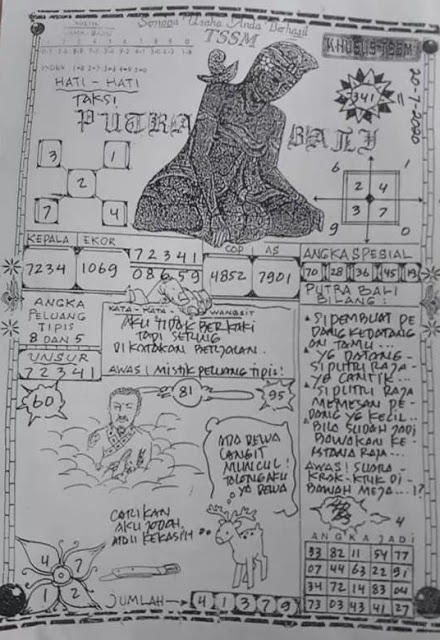 Semoga Usaha Anda Berhasil
TSSM
KHUSUS TSSM
20-7-2020
341
HATI - HATI
TAKSI
PUTRA
BALI
3 1
2
7 4
6 1
2 4
3 7
9 0
KEPALA EKOR
7234 1069
72341
08659
COP AS
4852 7901
ANGKA SPESIAL
70 28 36 45 19
ANGKA
PELUANG
TIPIS
8 DAN 5
UNSUR
72341
KATA - KATA - WANGSIT
AKU TIDAK BERKAKI
TAPI SERING
DI KATAKAN BERJALAN.
AWAS! MISTIK PELUANG TIPIS!
PUTRA BALI
BILANG:
SI PEMBUAT PE
DANG KEDATANG
AN TAMU...
YG DATANG -
SI PUTRI RAJA -
YG CANTIK...
SI PUTRI RAJA
MEMESAN PE -
DANG YG KECIL..
BILA SUDAH JADI
BAWAKAN KE -
ISTANA RAJA...
AWAS! SUARA -
KROK-KTUK DI -
BAWAH MEJA...!?
60
81
95
ADA DEWA
LANGIT
MUNCUL!
TOLONG AKU
YA DEWA
CARIKAN
AKU JODOH
ATAU KEKASIH
4 7
1 2
JUMLAH → 4 1 3 7 9
4
ANGKA JADI
33 82 11 54 77
07 44 63 22 91
34 72 14 83 04
73 03 43 41 27